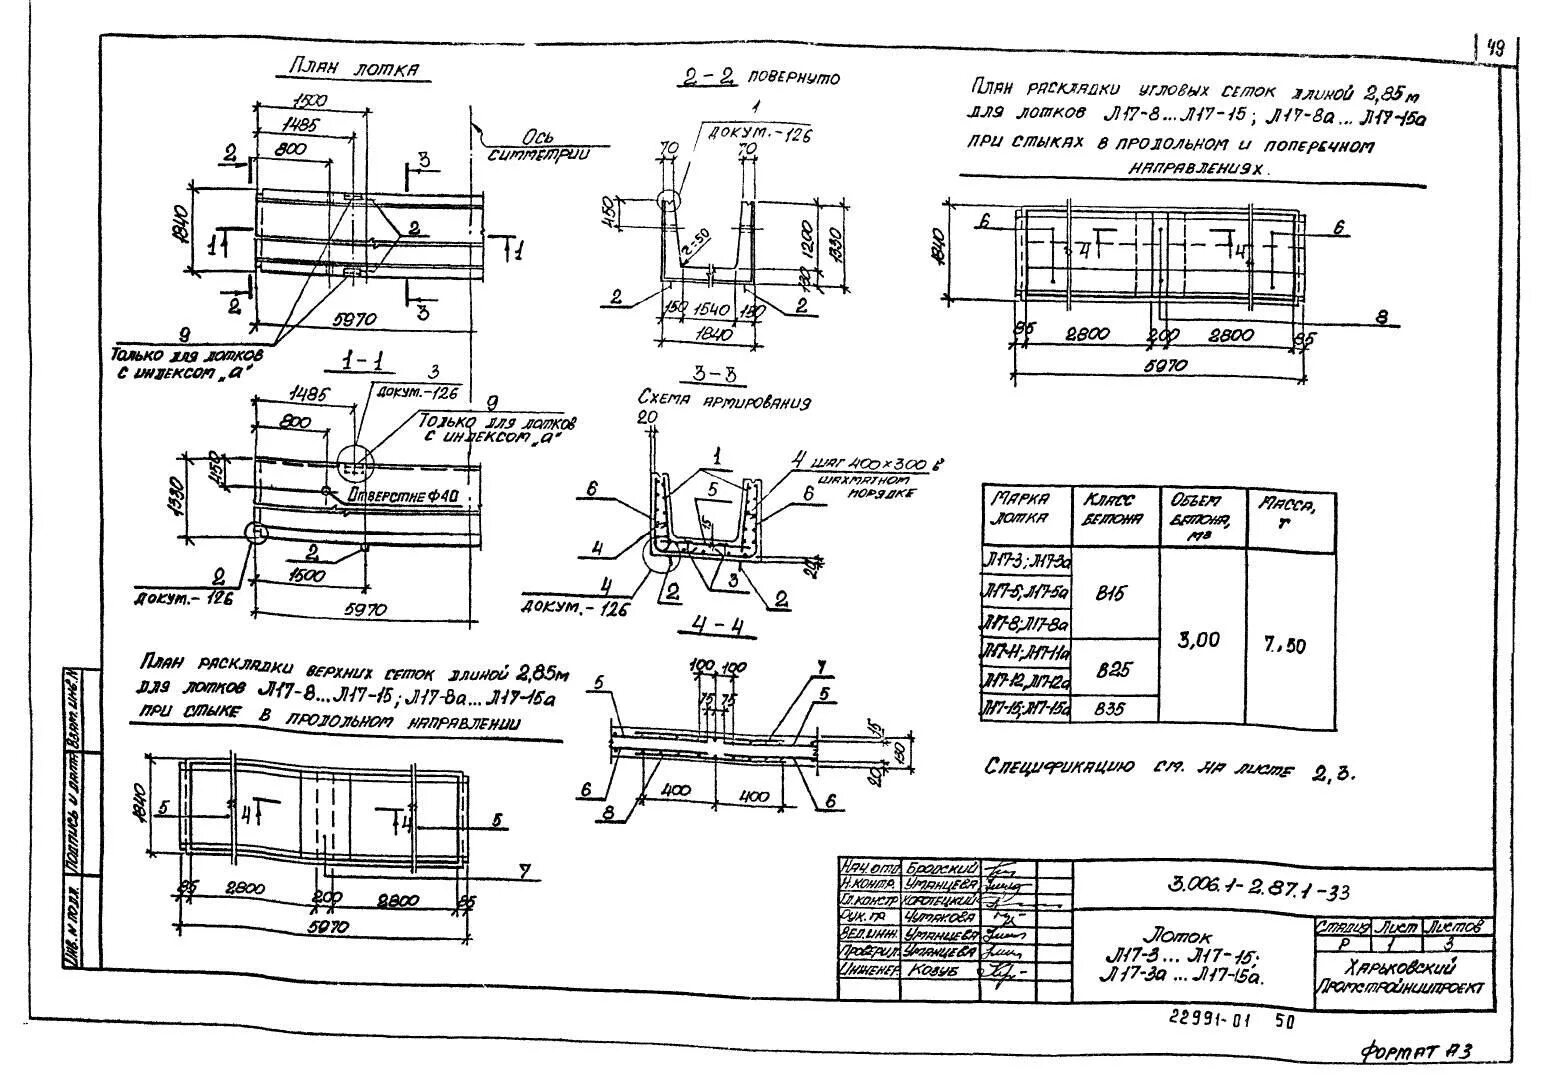 49
План лотка
1500
1485
800
Ось
симметрии
2
3
1840
1
2
1
2
3
5970
9
Только для лотков
с индексом „а"
2-2 повернуто
1
докум.-126
70
70
450
r=50
1200
1330
130
2
2
150
1540
150
1840
План раскладки угловых сеток длиной 2,85м
для лотков Л17-8...Л17-15; Л17-8а... Л17-15а
при стыках в продольном и поперечном
направлениях.
6
6
4
4
1840
8
85
2800
200
2800
85
5970
1-1
3
докум.-126
1485
9
Только для лотков
с индексом „а"
800
450
1330
Отверстие Ф40
2
2
докум.-126
1500
5970
3-3
Схема армирования
20
1
4 шаг 400×300 в
шахматном
порядке
5
6
6
15
4
4
докум.-126
2
3
2
20
Марка
лотка
Класс
бетона
Объем
бетона,
м3
Масса,
т
Л17-3; Л17-3а
Л17-5; Л17-5а
В15
Л17-8; Л17-8а
3,00
7.50
Л17-11; Л17-11а
В25
Л17-12; Л17-12а
Л17-15; Л17-15а
В35
Спецификацию см. на листе 2,3.
План раскладки верхних сеток длиной 2,85м
для лотков Л17-8...Л17-15; Л17-8а...Л17-15а
при стыке в продольном направлении
1840
5
4
4
5
7
85
2800
200
2800
85
5970
4-4
100
100
7
5
75
75
5
15
130
20
6
400
400
6
8
Нач.отд. Бродский
Н.контр. Уманцева
Гл.констр. Коротецкий
Рук. гр. Чумакова
Вед.инж. Уманцева
Проверил Уманцева
Инженер Козуб
3.006.1-2.87.1-33
Лоток
Л17-3 ... Л17-15;
Л17-3а ... Л17-15а.
Стадия Лист Листов
Р 1 3
Харьковский
Промстройниипроект
Инв. N подл.
Подпись и дата
Взам. инв. N
22991-01 50
Формат А3